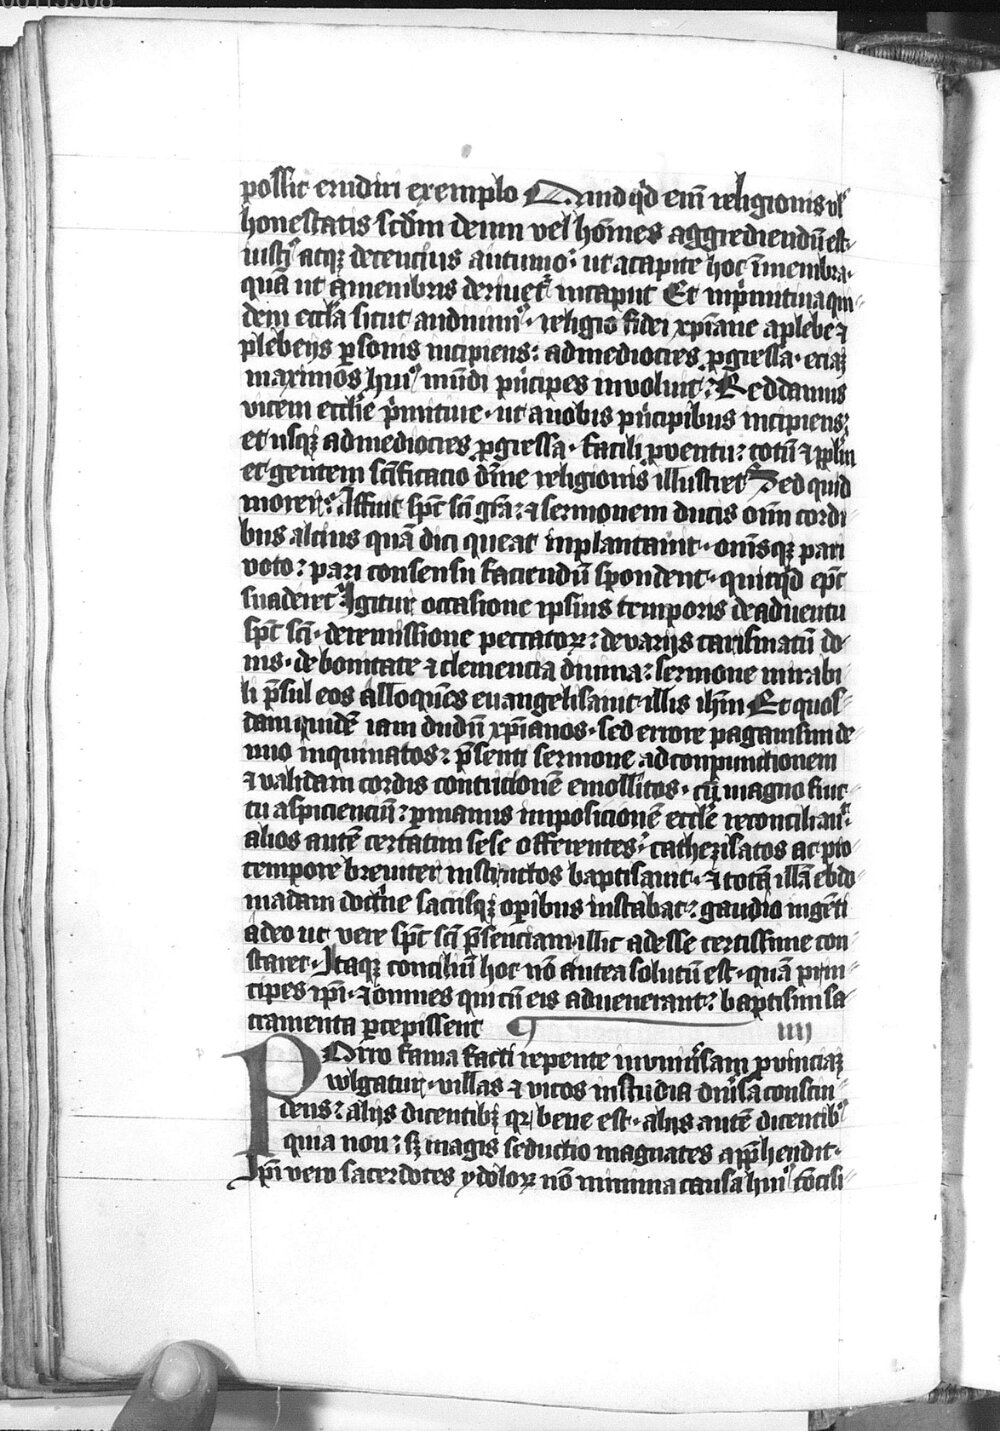 possit erudiri exemplo Quidq͛d em̅ religionis vl̕
honestatis scd̅m deum vel ho̅mes aggrediendu̅ est
iusti᷒ atqꝫ decencius autumo: ut a capite hoc i̅ membra·
qua̅ ut a membris deriuet᷑ in caput Et in p̅mitiua qui
dem eccl̅a sicut audiuim᷒· religio fidei xp̅iane a plebe ⁊
plebeijs ꝑsonis incipiens: ad mediocres ꝓgressa· eciaꝫ
maximos hui᷒ mu̅di p̅ncipes inuoluit: Reddamus
vicem eccl̅ie p̅mitiue· ut a uobis p̅ncipibus incipiens:
et usqꝫ ad mediocres ꝓgressa· facili ꝓuentu: totu̅ ⁊ ppl̅m
et gentem sc̅ificatio diuine religionis illustret Sed quid
morer: Affuit sp̅c sc̅i gr̅a: ⁊ sermonem ducis om̅i cordi
bus alcius qua̅ dici queat inplantauit· om̅sqꝫ pari
voto: pari consensu faciendu̅ spondent· quitq͛d ep̅c
suaderet Igitur occasione ipsius temporis de aduentu
sp̅c sc̅i· de remissione peccatoꝝ: de varijs carismatu̅ do
nis· de bonitate ⁊ clemencia diuina: sermone mirabi
li p̅sul eos alloque̅s euangelisauit illis ih̅m Et quos
dam quide̅ iam dudu̅ xp̅ianos· sed errore paganismi de
nuo inquinatos: p̅senti sermone ad conpunctionem
⁊ validam cordis contricione̅ emollitos· cu̅ magno fruc
tu aspicienciu̅: ꝑ manus imposicione̅ eccl̅e reconciliaui᷑
alios aute̅ certatim sese offerentes· cathezisatos ac pro
tempore breuiter instructos baptisauit· ⁊ tota̅ illa̅ ebdo
madam doct̅ne sacrisqꝫ oꝑibus instabat: gaudio inge̅ti
adeo ut vere sp̅c sc̅i p̅senciam illic adesse certissime con
staret· Itaqꝫ conciliu̅ hoc no̅ antea solutu̅ est· qua̅ prin
cipes ip̅i· ⁊ omnes qui cu̅ eis aduenerant: baptismi sa
cramenta ꝑcepissent iiij
POrro fama facti repente in vniu̅sam ꝓuinciaꝫ
wlgatur· villas ⁊ vicos in studia diu̅sa constin
dens: alijs dicentibꝫ qꝛ bene est· alijs aute̅ dicentib᷒
quia non: sꝫ magis seductio magnates app̅hendit·
Ip̅i vero sacerdotes ydoloꝝ no̅ minima causa hui᷒ co̅cili